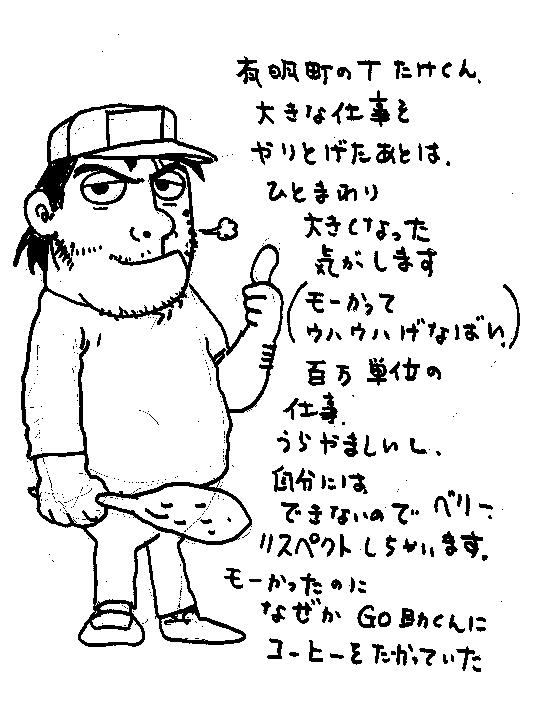 有明町のTたけくん、
大きな仕事を
やりとげたあとは、
ひとまわり
大きくなった
気がします
(モーかって
ウハウハげなばい。)
百万単位の
仕事、
うらやましいし、
自分には
できないのでベリー
リスペクトしちゃいます。
モーかったのに
なぜかGO助くんに
コーヒーをたかっていた